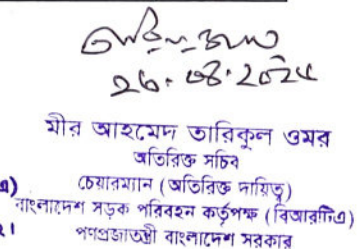 ২৬.০৪.২০২৫
মীর আহমেদ তারিকুল ওমর
অতিরিক্ত সচিব
এ) চেয়ারম্যান (অতিরিক্ত দায়িত্ব)
বাংলাদেশ সড়ক পরিবহন কর্তৃপক্ষ (বিআরটিএ)
২। গণপ্রজাতন্ত্রী বাংলাদেশ সরকার